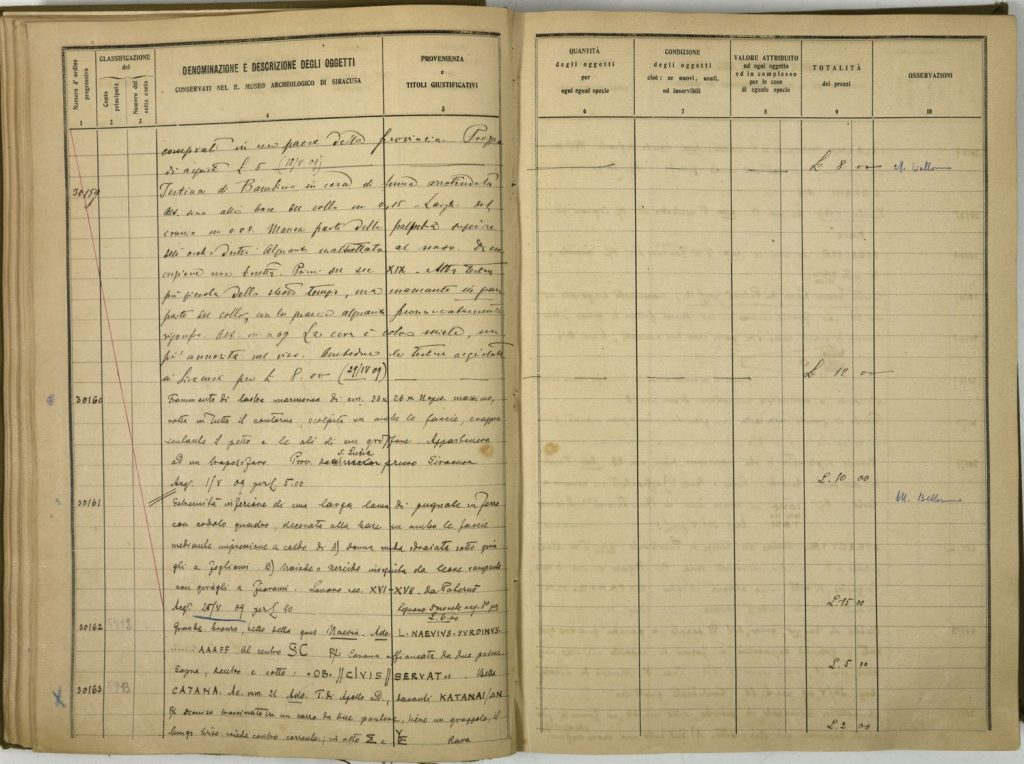 Numero d'ordine progressivo
CLASSIFICAZIONE del
Conto principale
Numero del sotto conto
DENOMINAZIONE E DESCRIZIONE DEGLI OGGETTI
CONSERVATI NEL R. MUSEO ARCHEOLOGICO DI SIRACUSA
PROVENIENZA
e
TITOLI GIUSTIFICATIVI
1 2 3 4 5
comprati in un paese della provincia. Prezzo
di acquisto L 5 (18/V 09)
30159 Testina di Bambino in cera di forma arrotondata
alt. sino alla base del collo m 0,15 - Largh. del
cranio m 0.08. Manca parte della palpebra superiore
dell'occhio destro. Alquanto maltrattato al naso. Di ese
cuzione non buona. Primi del sec XIX - Altra testina
più piccola dello stesso tempo, ma mancante in gran
parte del collo, con la faccia alquanto pronunciatamente
Alt. m 0.09 La cera è color miele, un
po' annerita nel viso. Ambedue le testine acquistate
in Siracusa per L 8.00 (29/IV 09)
30160 Frammento di lastra marmorea di cm. 33 x 26 x 11 spess. massimo,
rotta in tutto il contorno, scolpita su ambo le faccie, rappre
sentante il petto e le ali di un griffone. Apparteneva
ad un trapezoforo. Prov. da S. Lucia presso Siracusa
Acq. 1/V 09 per L 5.00
30161 Estremità inferiore di una larga lama di pugnale in ferro
con codolo quadro, decorata alla base su ambo le faccie
mediante impressione a caldo di A) donna nuda sdraiata sotto gira
gli a fogliami B) Naiade o Nereide inseguita da leone rampante
con girigli a fiorami. Lavoro sec. XVI-XVII. Da Paternò
Acq. 25/V 09 per L 10
Seguono 5 monete acq. per
L. 6.00
30162 5912 Grande bronzo, bello della gens Naevia. Ads. L. NAEVIVS. SVRDINVS.
......AAAFF al centro SC Rx Corona affiancata da due palme
sopra, dentro e sotto: OB // CIVIS // SERVATos. Bella
30163 5913 CATANA. Ae. mm. 21 Ads. T. di Apollo a D., davanti KATANAIΩN
Rx Dioniso trascinato in un carro da due pantere, tiene un grappolo, il
lungo tirso ; in alto Σ e Rara
QUANTITÀ
degli oggetti
per
ogni egual specie
CONDIZIONE
degli oggetti
cioè: se nuovi, usati,
od inservibili
VALORE ATTRIBUITO
ad ogni oggetto
ed in complesso
per le cose
di eguale specie
TOTALITÀ
dei prezzi
OSSERVAZIONI
6 7 8 9 10
L 8 00 M. Bellomo
L 12 00
L. 10 00
M. Bellomo
L. 15 00
L. 5 00
L. 2 00